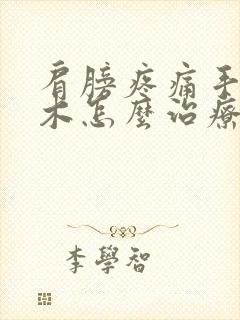 肩膀疼痛手
木怎麼治療
李學智